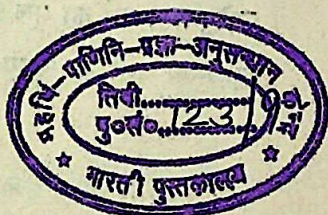 महर्षि–पाणिनि–प्रज्ञा–अनुसन्धान
तिथी..............
पु०सं०..1231
★ भारती पुस्तकालय ★